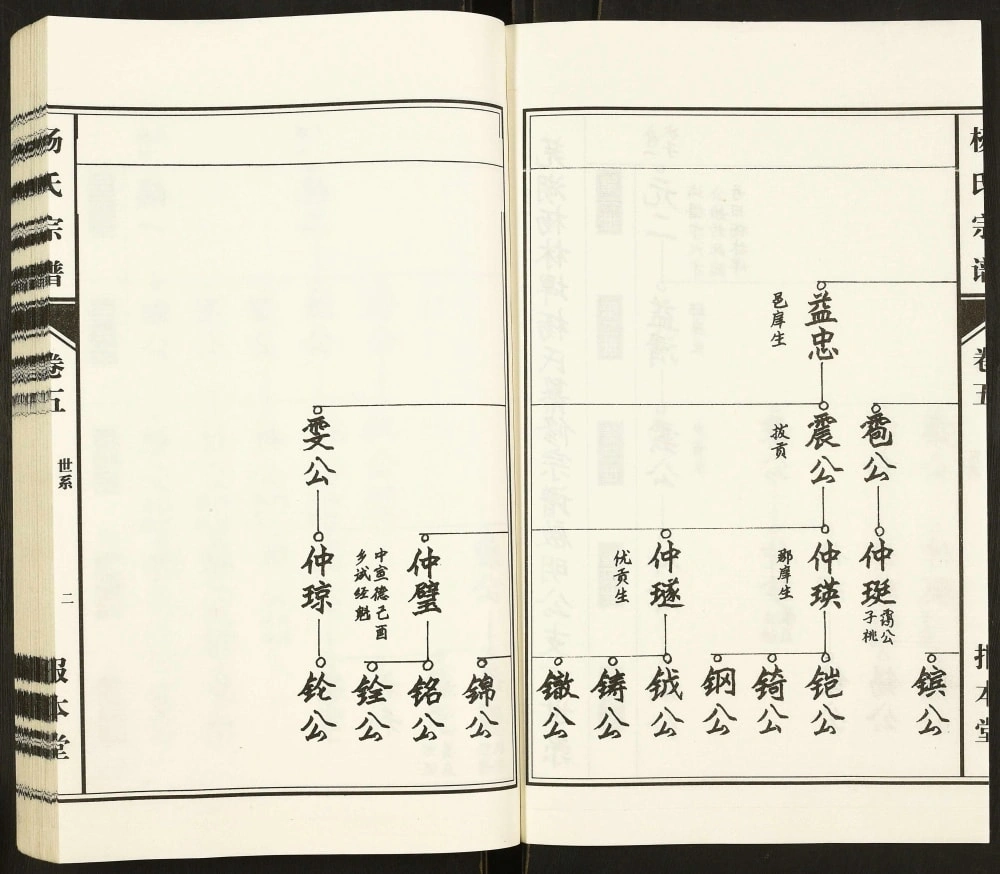 杨氏宗谱
卷五
报本堂
益忠
邑庠生
雹公
震公
拔贡
仲珽
霭公
子桃
仲瑛
郡庠生
仲璲
优贡生
镔公
铠公
锜公
钢公
钺公
铸公
镦公
雯公
仲璧
中宣德己酉
乡试经魁
仲琼
锦公
铭公
铨公
铃公
杨氏宗谱
卷五
世系
二
报本堂